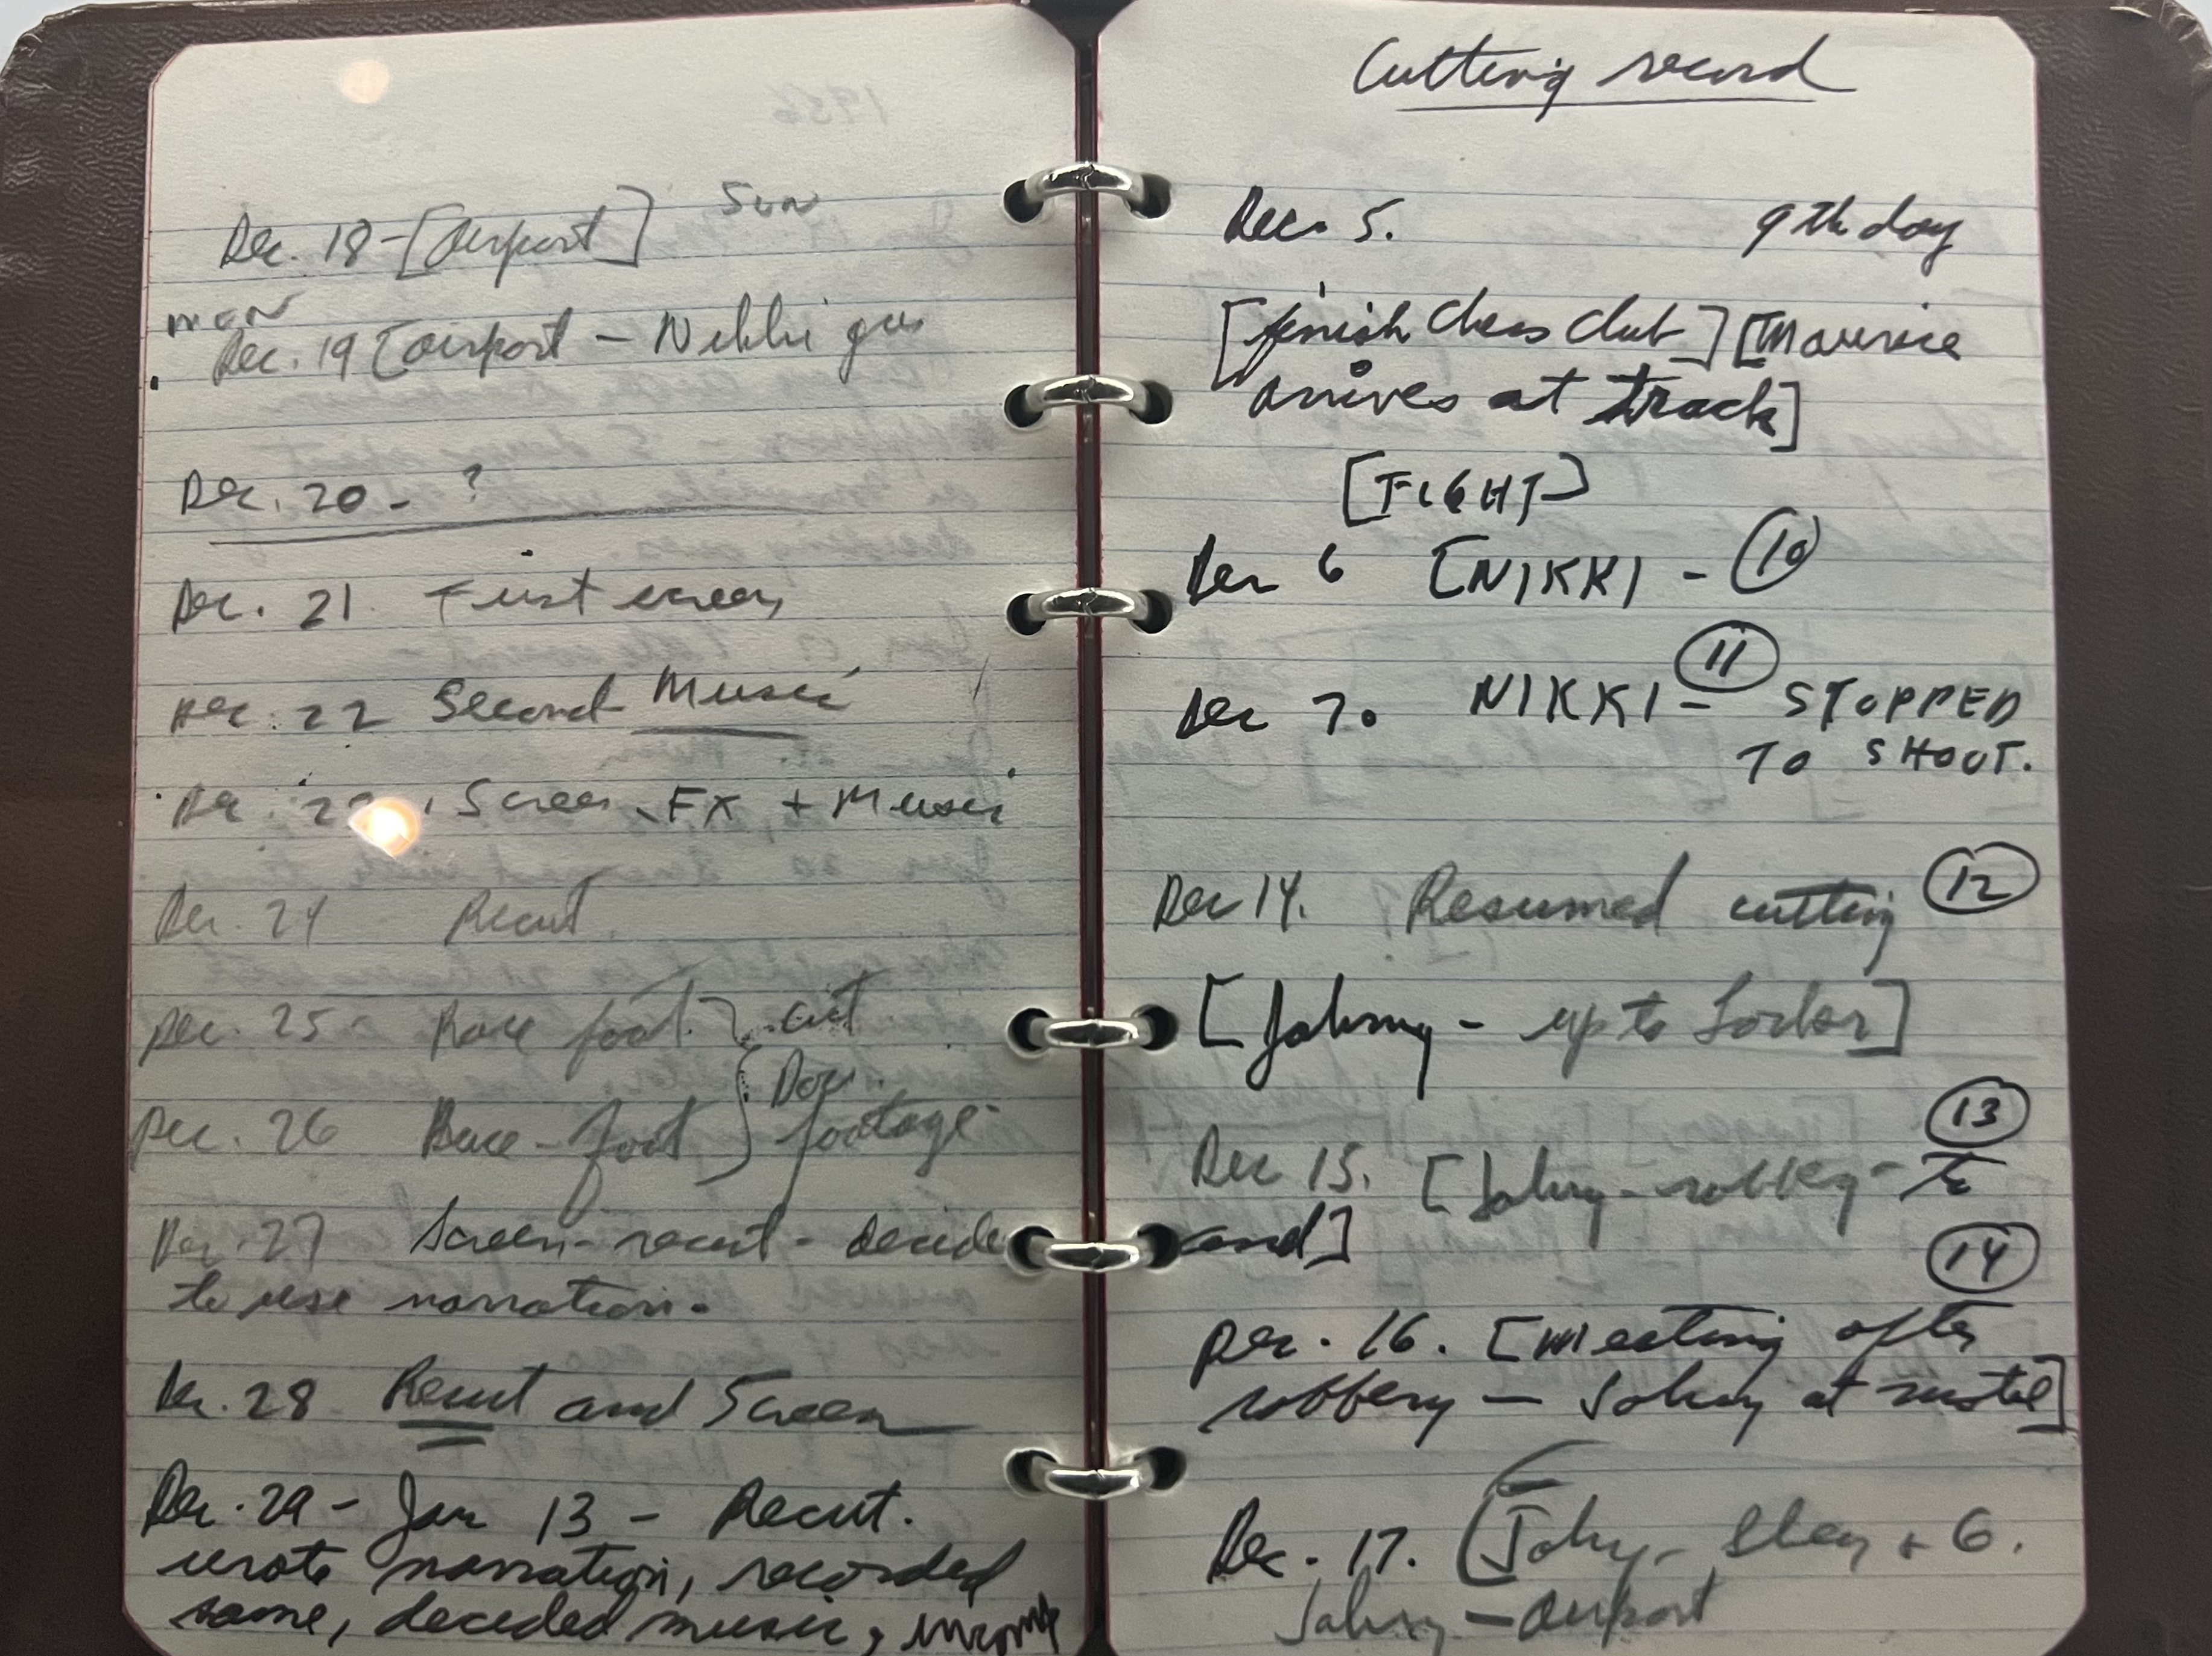 Sun
Dec. 18 - [Airport]
Mon
Dec. 19 [airport - Nikki gun
Dec. 20 - ?
Dec. 21. First screen
Dec. 22 Second Music
Dec. Screen FX + Music
Dec. 24 Recut.
Dec. 25 - Race foot. } cut
Doc.
Dec. 26 Race - foot } footage
Dec. 27 Screen - recut - decide
to use narration.
Dec. 28 Recut and Screen
Dec. 29 - Jan 13 - Recut.
wrote narration, recorded
same, decided music,
Cutting record
Dec. 5. 9th day
[finish Chess Club] [Maurice
arrives at track]
[FIGHT]
Dec 6 [NIKKI - 10
11
Dec 7. NIKKI - STOPPED
TO SHOOT.
Dec 14. Resumed cutting 12
[Johnny - up to Locker]
13
Dec 15. [Johnny - robbery - to
end]
14
Dec. 16. [Meeting after
robbery - Johnny at motel]
Dec. 17. [Johny - + G.
Johny - airport